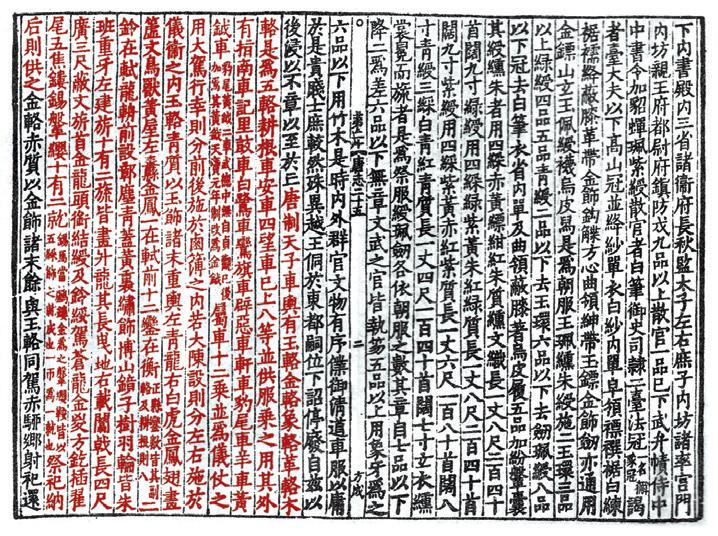 下內書殿內三省諸衛府長秋監太子左右庶子內坊諸率宮門
內坊親王府都尉府鎮防戍九品以上散官一品已下武弁幘侍中
中書令加貂蟬珮紫綬散官者白筆御史司隸二臺法冠一名獬豸冠謁
者臺大夫以下高山冠並絳紗單衣白紗內單皁領褾襈裾白練
裾襦絳蔽膝革帶金飾鉤䚢方心曲領紳帶玉鏢金飾劍亦通用
金鏢山玄玉佩綬襪烏皮舄是為朝服玉珮纁朱綬施二玉環三品
以上綠綬四品五品青綬二品以下去玉環六品以下去劍珮綬八品
以下冠去白筆衣省內單及曲領蔽膝著烏皮履五品加紛鞶囊
其綬纁朱者用四綵赤黃縹紺紅朱質纁文織長一丈八尺二百四十
首闊九寸綠綬用四綵綠紫黃朱紅綠質長一丈八尺二百四十首
闊九寸紫綬用四綵紫黃赤紅紫質長一丈六尺一百八十首闊八
寸青綬三綵白青紅青質長一丈四尺一百四十首闊七寸玄衣纁
裳冕而旒者是為祭服綬珮劍各依朝服之數其章自七品以下
降二為差六品以下無章文武之官皆執笏五品以上用象牙為之
唐志二十五 二 方成
六品以下用竹木是時內外群官文物有序僕御清道車服以庸
於是貴賤士庶較然殊異越王侗於東都嗣位下詔停廢自茲以
後浸以不章以至於亡唐制天子車輿有玉輅金輅象輅革輅木
輅是為五輅耕根車安車四望車已上八等並供服乘之用其外
有指南車記里鼓車白鷺車鸞旗車辟惡車軒車豹尾車羊車黃
鉞車豹尾黃鉞二車武德中無自貞觀已後加焉其黃鉞天寶元年制改為金鉞屬車十二乘並為儀仗之
用大駕行幸則分前後施於鹵簿之內若大陳設則分左右施於
儀衛之內玉輅青質以玉飾諸末重輿左青龍右白虎金鳳翅畫
簴文鳥獸黃屋左纛金鳳一在軾前十二鑾在衡正縣鑾數皆其副輅及耕根則八二
鈴在軾龍輈前設鄣塵青蓋黃裏繡飾博山鏡子樹羽輪皆朱
班重牙左建旂十有二旒皆畫升龍其長曳地右載闟戟長四尺
廣三尺黻文旂首金龍頭銜結綬及鈴綏駕蒼龍金㚇方釳插翟
尾五焦鏤錫鞶纓十有二就錫馬當顱鏤金為之鞶纓鞍皆以五綵飾之就成也一帀為一就也祭祀納
后則供之金輅赤質以金飾諸末餘與玉輅同駕赤騮鄉射祀還